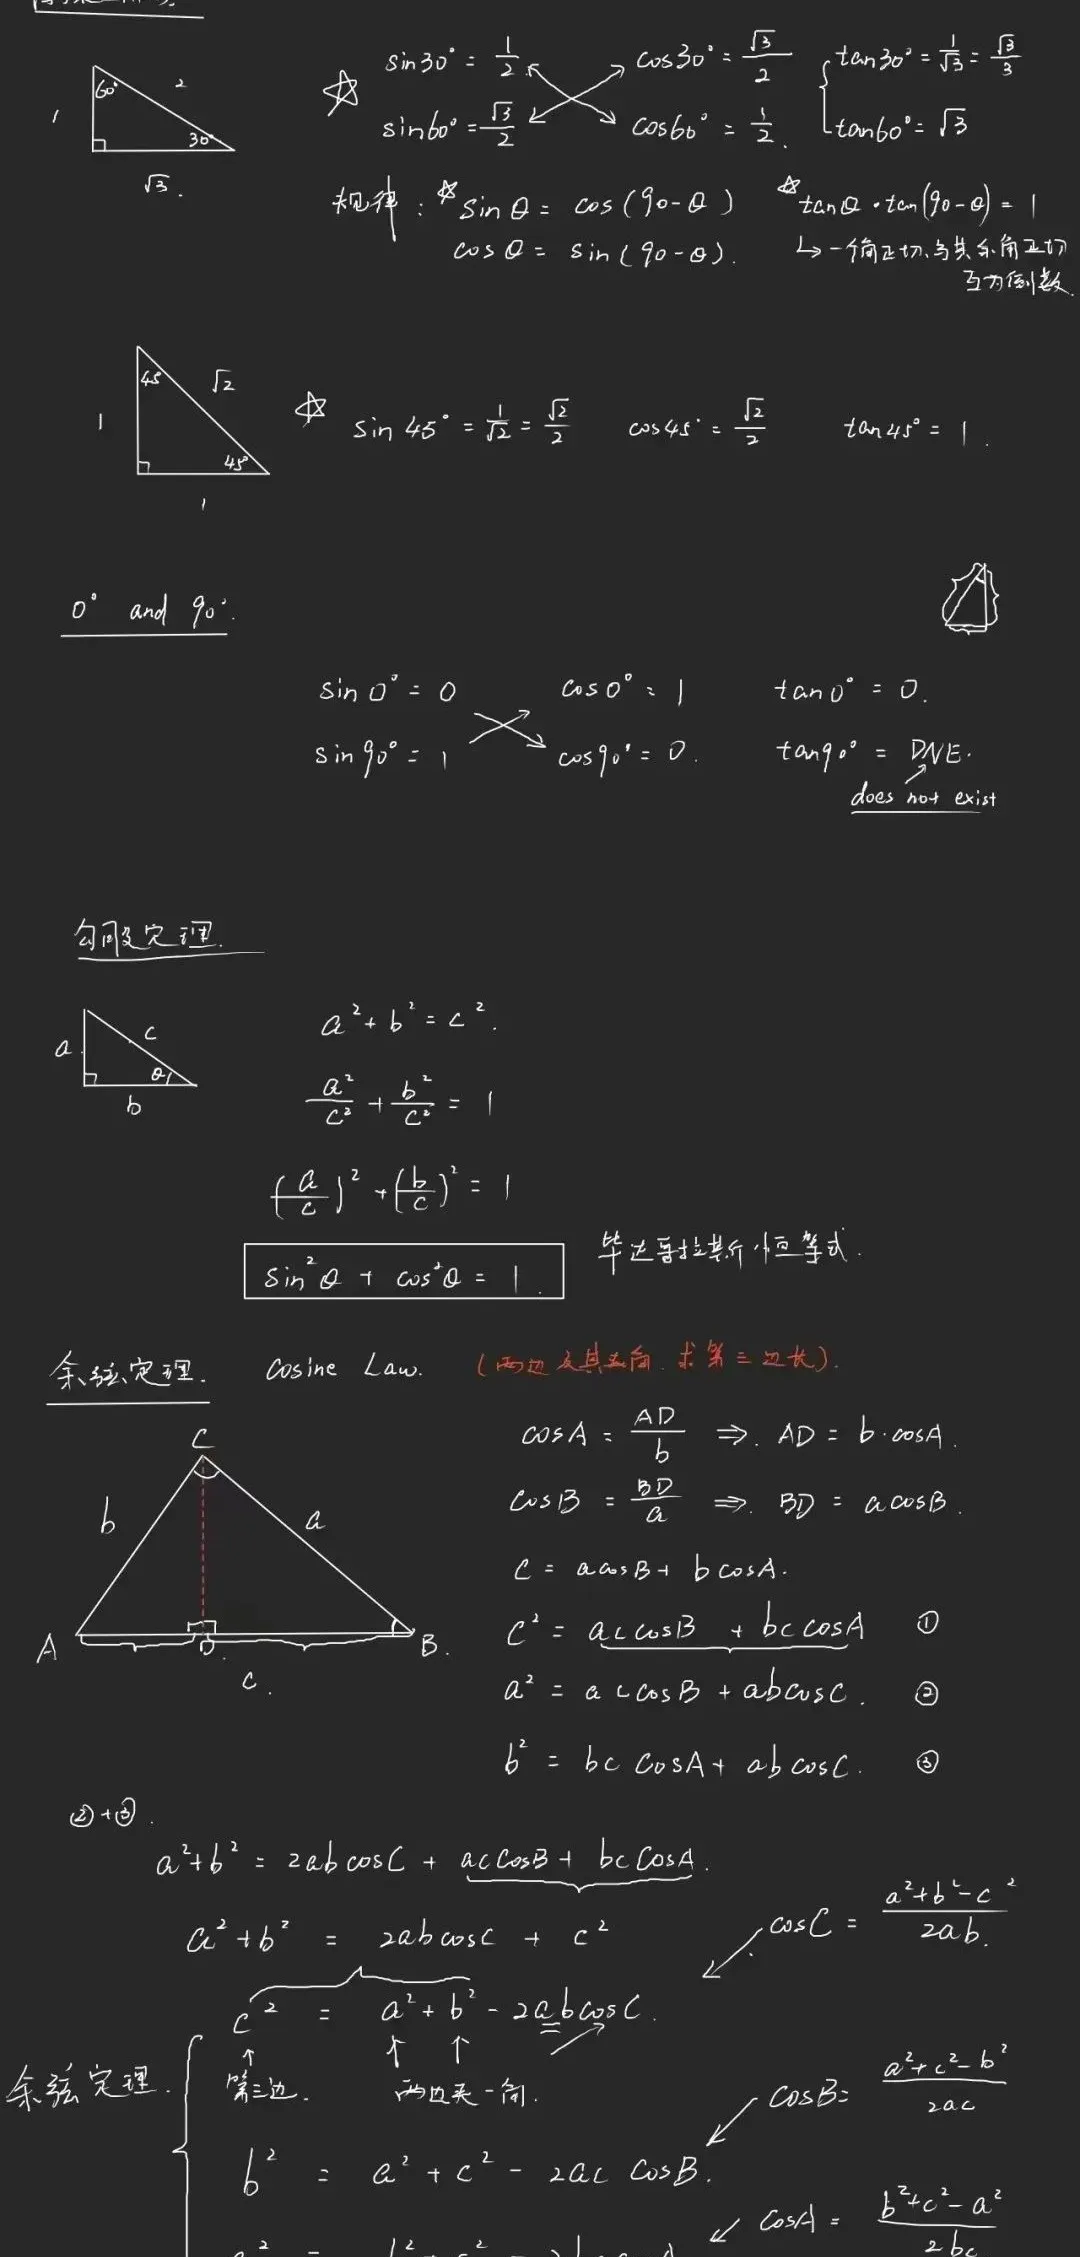 60° 2
1
30°
√3.
sin30° = 1/2 cos30° = √3/2 tan30° = 1/√3 = √3/3
sin60° = √3/2 cos60° = 1/2. tan60° = √3
规律: sinθ = cos(90-θ) tanθ·tan(90-θ) = 1
cosθ = sin(90-θ). ↳ 一个角正切与其余角正切
互为倒数.
45° √2
1
45°
1
sin45° = 1/√2 = √2/2 cos45° = √2/2 tan45° = 1.
0° and 90°.
sin0° = 0 cos0° = 1 tan0° = 0.
sin90° = 1 cos90° = 0. tan90° = DNE.
does not exist
勾股定理.
a c
θ
b
a² + b² = c².
a²/c² + b²/c² = 1
(a/c)² + (b/c)² = 1
sin²θ + cos²θ = 1. 毕达哥拉斯恒等式.
余弦定理. cosine Law. (两边及其夹角.求第三边长).
C
b a
A D. B.
c.
cosA = AD/b ⇒. AD = b·cosA.
cosB = BD/a ⇒. BD = acosB.
c = acosB + bcosA.
c² = accosB + bccosA ①
a² = accosB + abcosC. ②
b² = bccosA + abcosC. ③
②+③.
a²+b² = 2abcosC + accosB + bccosA.
a²+b² = 2abcosC + c² cosC = (a²+b²-c²)/2ab.
c² = a²+b²-2abcosC.
余弦定理. 第三边. 两边夹一角. cosB = (a²+c²-b²)/2ac
b² = a²+c²-2ac cosB.
cosA = (b²+c²-a²)/2bc